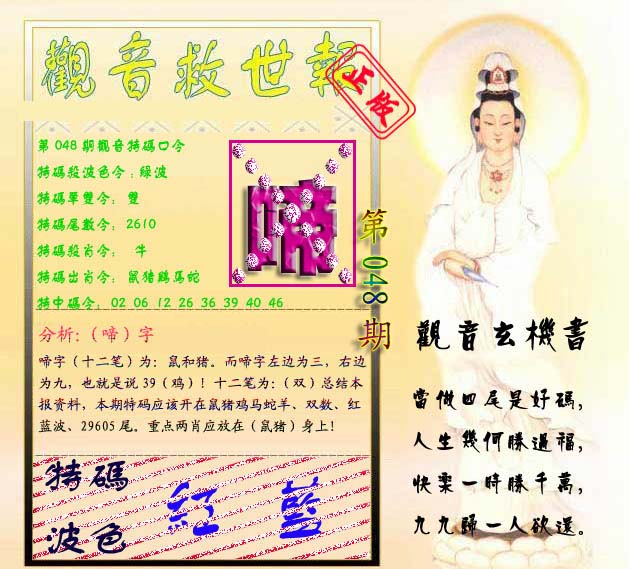 觀音救世報
正版
第048期觀音特碼口令
特碼殺波色令:綠波
特碼單雙令: 雙
特碼尾數令: 2610
特碼殺肖令: 牛
特碼出肖令: 鼠猪鷄馬蛇
特中碼令: 02 06 12 26 36 39 40 46
啼
第048期
分析:（啼）字
啼字（十二笔）为：鼠和猪。而啼字左边为三，右边
为九，也就是说39（鸡）！十二笔为：（双）总结本
报资料，本期特码应该开在鼠猪鸡马蛇羊、双数、红
蓝波、29605尾。重点两肖应放在（鼠猪）身上！
特碼
波色
紅 藍
觀音玄機書
當做四尾是好碼，
人生幾何勝過福，
快樂一時勝千萬，
九九歸一人欲還。